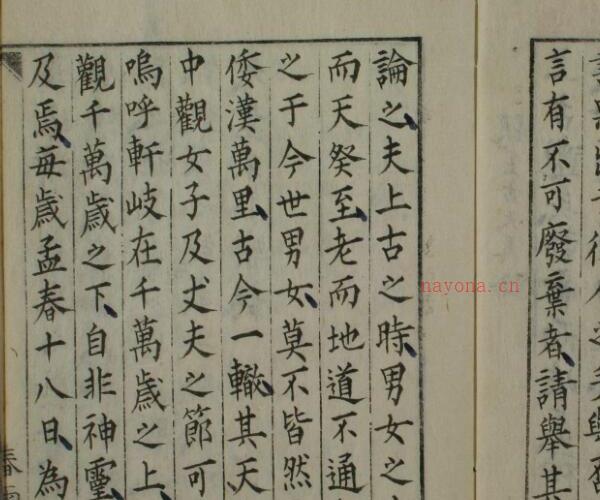 言有不可廢棄者請舉其
論之夫上古之時男女之
而天癸至老而地道不通
之于今世男女莫不皆然
倭漢萬里古今一轍其天
中觀女子及丈夫之節可
嗚呼軒岐在千萬歲之上
觀千萬歲之下自非神靈
及焉每歲孟春十八日為
nayona.cn